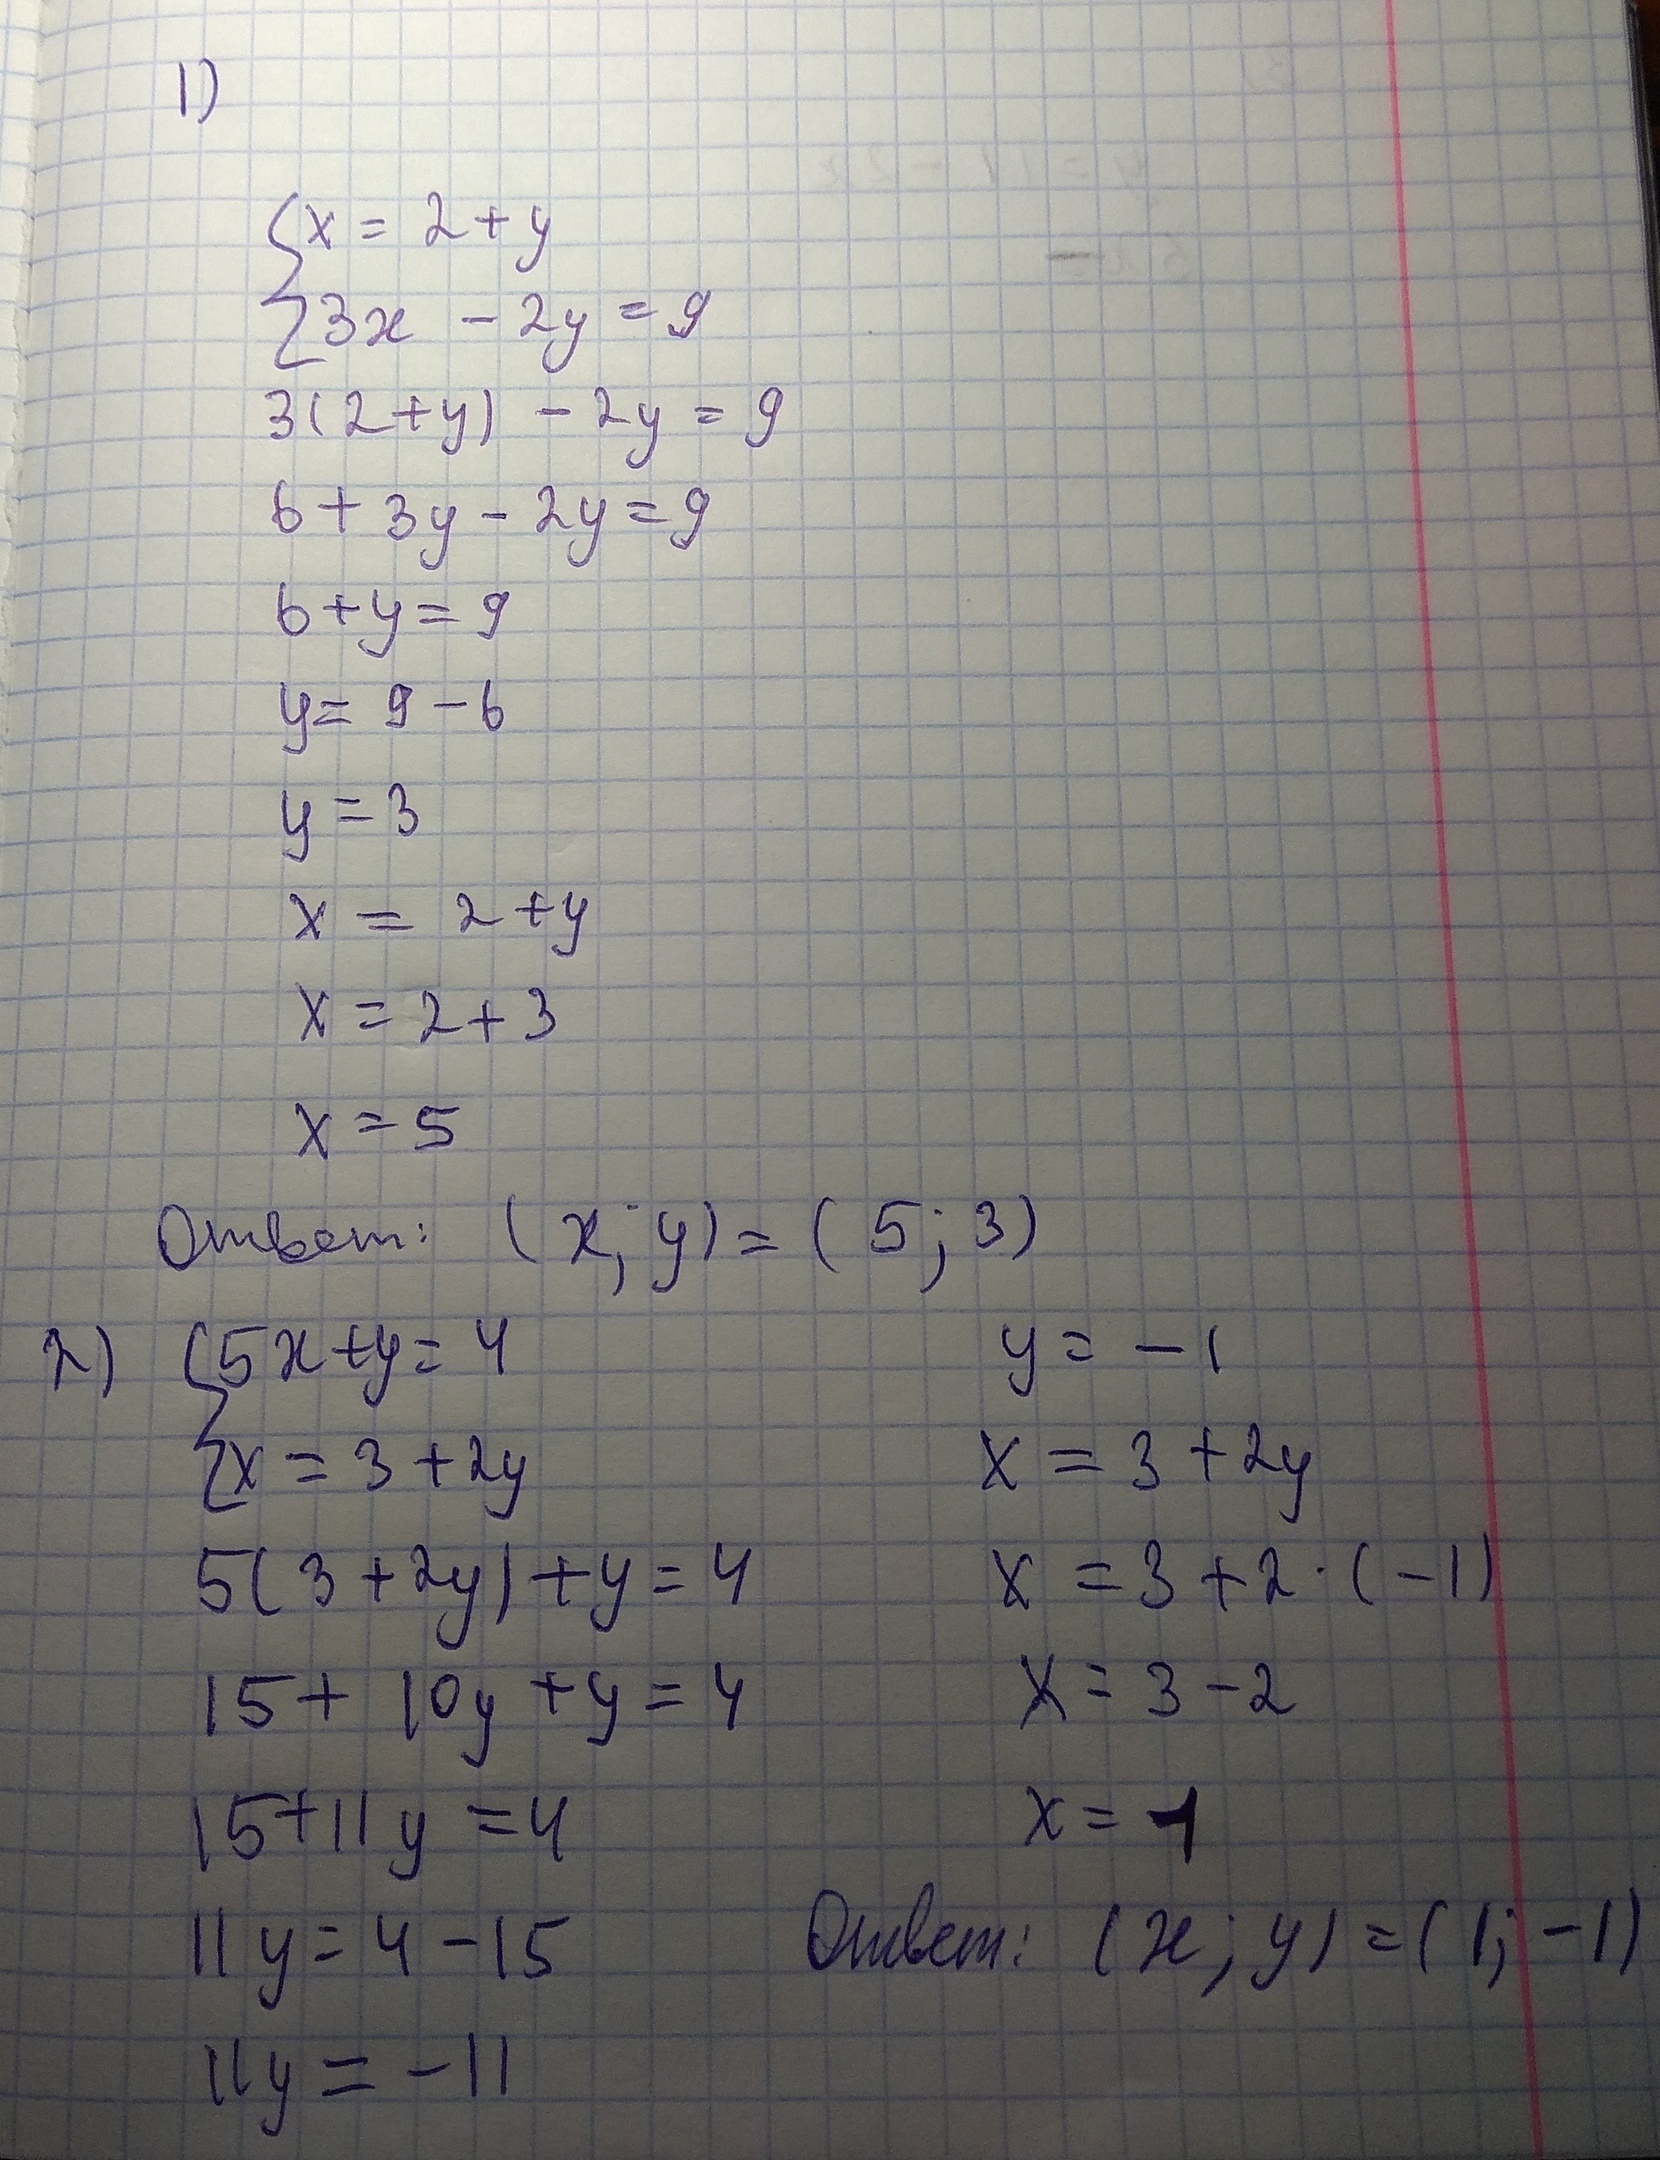 1)
{x = 2 + y
{3x - 2y = 9
3(2+y) - 2y = 9
6 + 3y - 2y = 9
6 + y = 9
y = 9 - 6
y = 3
x = 2 + y
x = 2 + 3
x = 5
Ответ: (x; y) = (5; 3)
2) {5x + y = 4
{x = 3 + 2y
5(3 + 2y) + y = 4
15 + 10y + y = 4
15 + 11y = 4
11y = 4 - 15
11y = -11
y = -1
x = 3 + 2y
x = 3 + 2 · (-1)
x = 3 - 2
x = 1
Ответ: (x; y) = (1; -1)